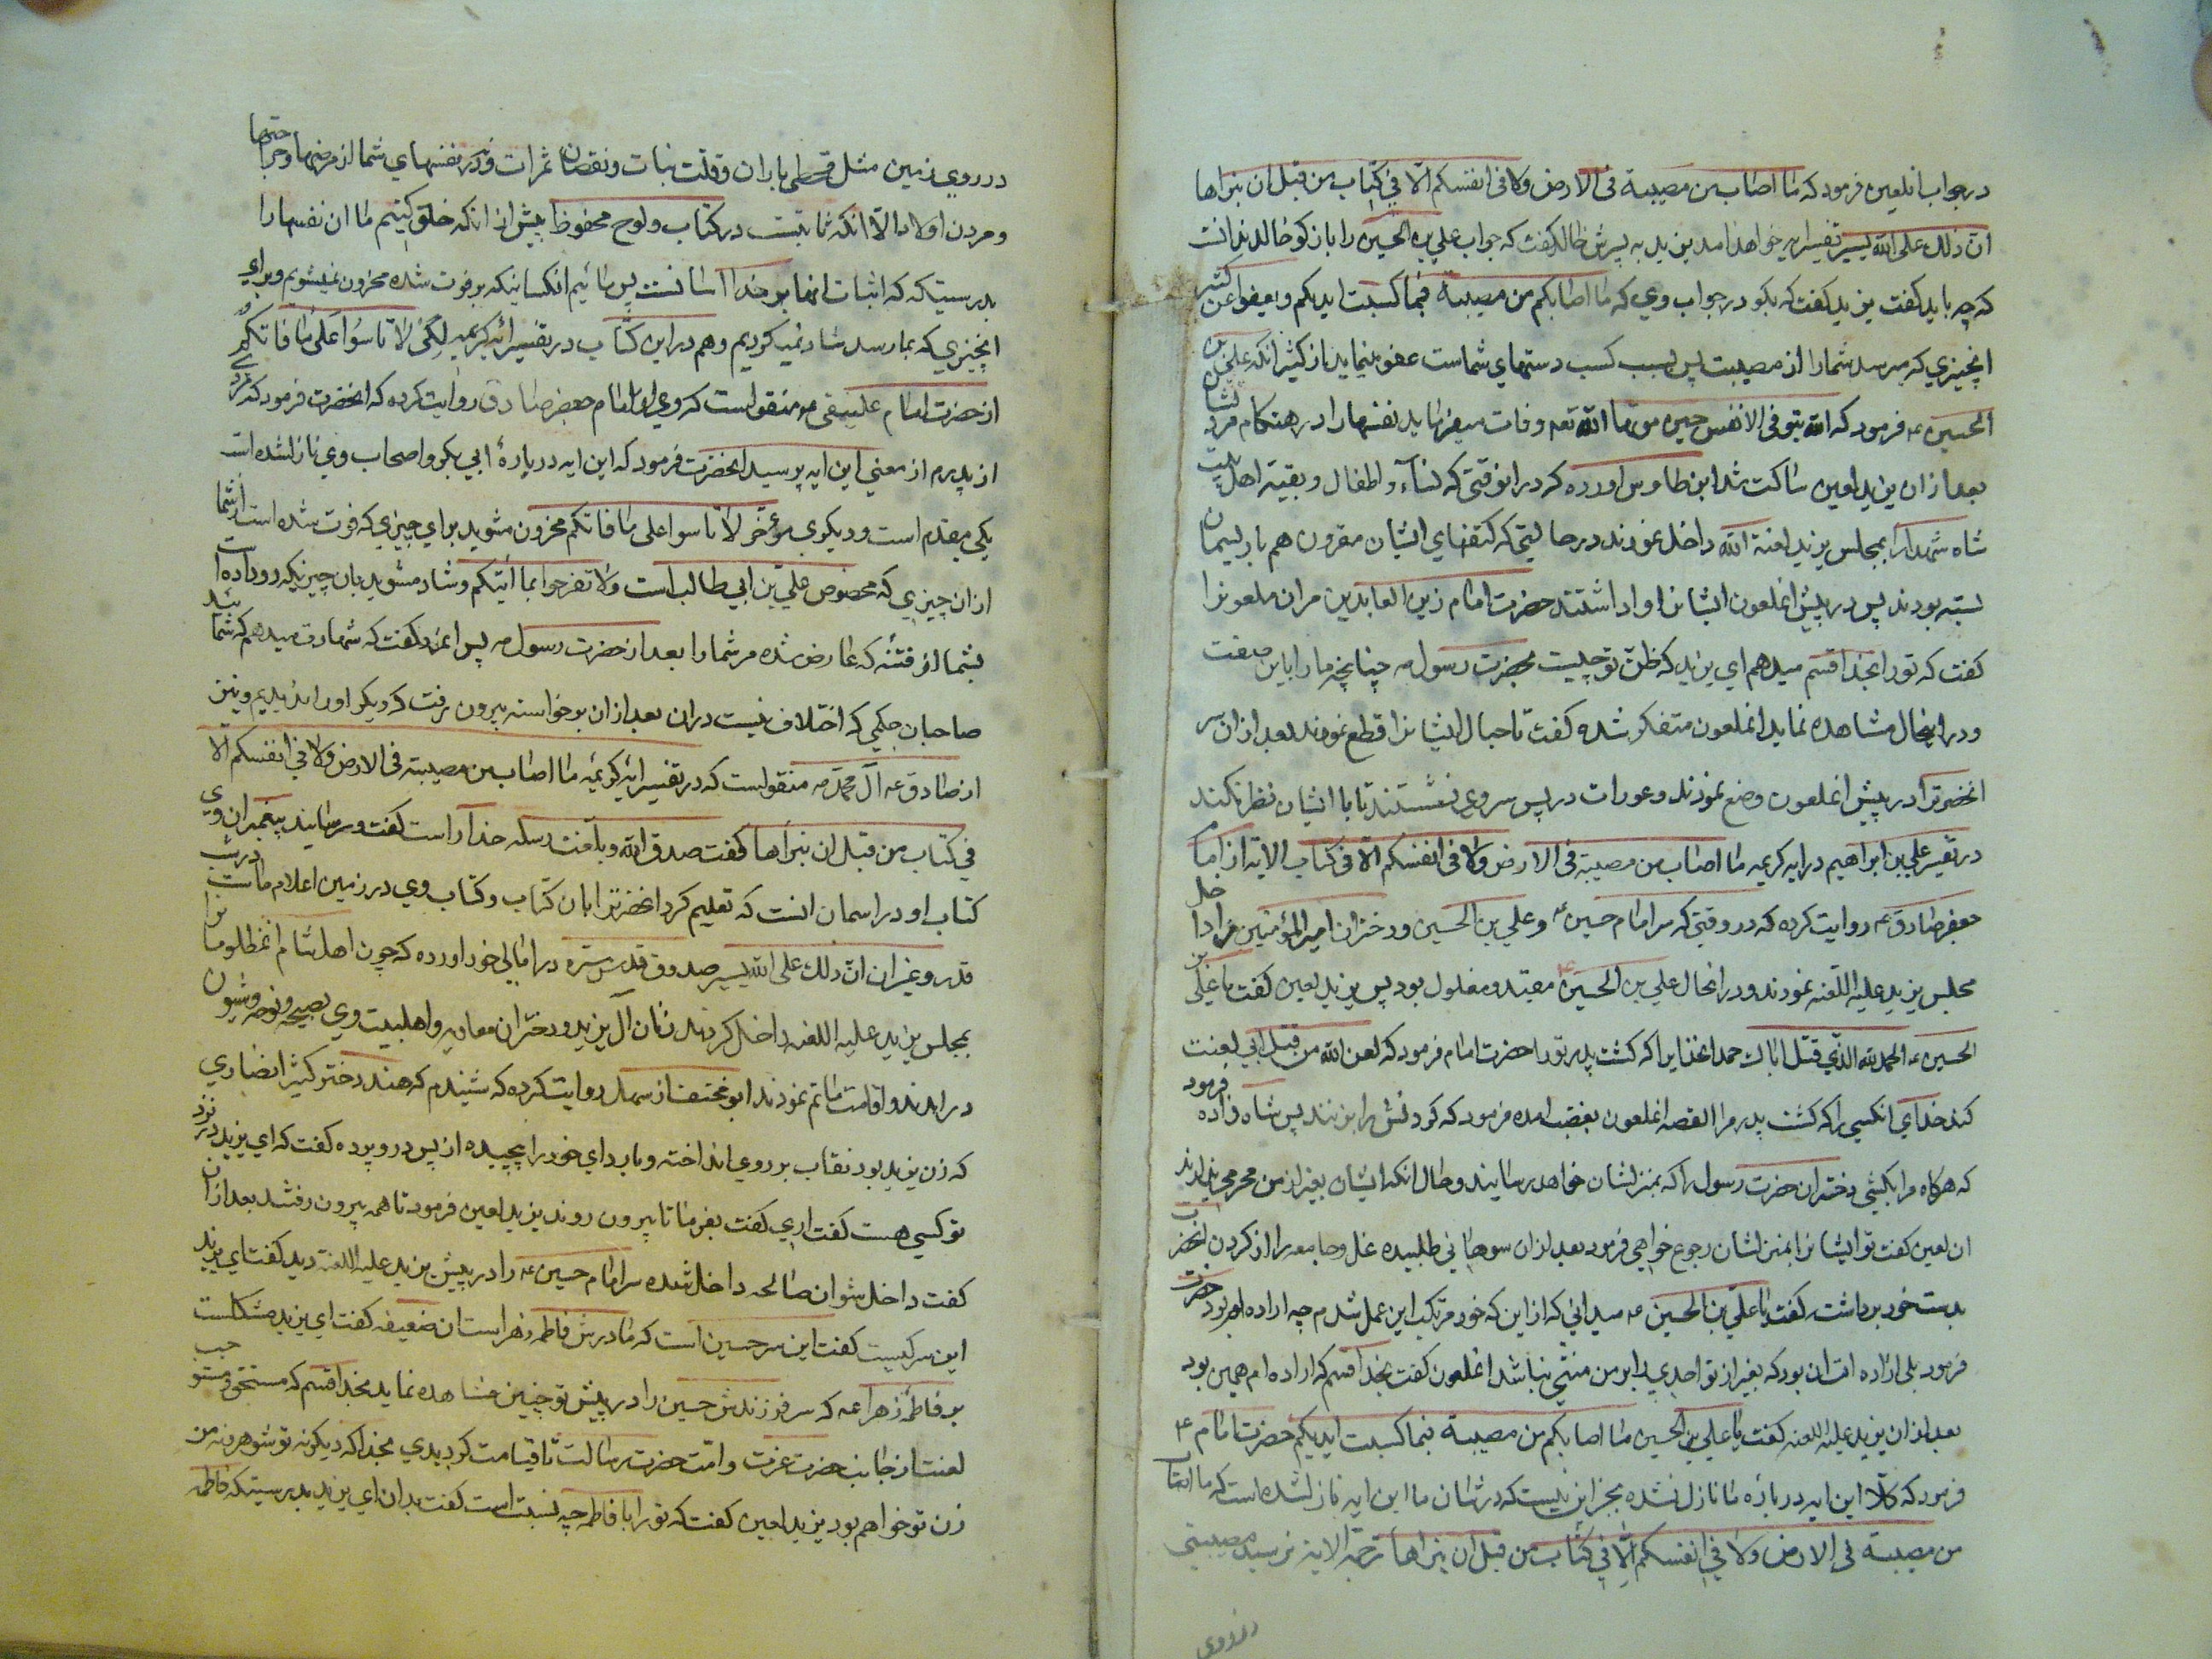 در جواب انلعین فرمود که ما اصاب من مصیبة فی الارض ولا فی انفسکم الا فی کتاب من قبل ان نبراها
ان ذلک علی الله یسیر تفسیر ایه خواهد امد یزید به پسرش خالد گفت که جواب علی بن الحسین را باز کو خالد ندانست
که چه باید کفت یزید کفت که بکو در جواب وی که ما اصابکم من مصیبة فبما کسبت ایدیکم ویعفو عن کثیر
انچیزی که میرسد شما را از مصیبت پس بسبب کسب دستهای شماست عفو مینماید از کثیر انکه علی بن
الحسین ع فرمود که الله یتوفی الانفس حین موتها الله تعه وفات میفرماید نفسها را در هنکام مردن
بعد ازان یزید لعین ساکت شد ابن طاوس اورده که در انوقتی که نساء و اطفال و بقیة اهل بیت
شاه شهدا را بمجلس یزید لعنة الله داخل نمودند در حالیتی که کتفهای ایشان مقرون هم بریسمان
بسته بودند پس در پیش انملعون ایشانرا واداشتند حضرت امام زین العابدین مران ملعونرا
کفت که تورا بخدا قسم میدهم ای یزید که ظن تو چیست بحضرت رسول ص چنانچه ما را باین صفت
ودر اینحال مشاهده نماید انملعون متفکر شده کفت تا حبال ایشانرا قطع نمودند بعد ازان سر
انحضرترا در پیش انملعون وضع نمودند وعورات در پس سر وی نشستند تا با ایشان نظر نکنند
در تفسیر علی بن ابراهیم در ایه کریمه ما اصاب من مصیبة فی الارض ولا فی انفسکم الا فی کتاب الایة از امام
جعفر صادق ع روایت کرده که در وقتی که سر امام حسین ع وعلی بن الحسین ودختران امیر المؤمنین را داخل
مجلس یزید علیه اللعنه نمودند ودر انحال علی بن الحسین ع مقید ومغلول بود پس یزید لعین کفت یا علی بن
الحسین ع الحمد لله الذی قتل اباک حمد انخدایرا که کشت پدر تورا حضرت امام فرمود که لعن الله من قتل ابی لعنت
کند خدای انکسی را که کشت پدر مرا القصه انملعون بغضب امده فرمود که کردنش را بزنند پس شاه زاده فرمود
که هرکاه مرا بکشی دختران حضرت رسول را که بمنزلشان خواهد رسانید وحال انکه ایشان بغیر از من محرمی ندارند
ان لعین کفت تو ایشانرا بمنزلشان رجوع خواهی فرمود بعد ازان سوهانی طلبیده غل وجامعه را از کردن انحضرت
بدست خود برداشت کفت یا علی بن الحسین ع میدانی که از این که خود مرتکب این عمل شدم چه اراده ام بود حضرت
فرمود بلی اراده ات ان بود که بغیر از تو احدی را بر من منتی نباشد انملعون کفت بخدا قسم که اراده ام همین بود
بعد ازان یزید علیه اللعنه کفت یا علی بن الحسین ما اصابکم من مصیبة فبما کسبت ایدیکم حضرت امام ع
فرمود که کلا این ایه در باره ما نازل نشده بجز این نیست که در شان ما این ایه نازلشده است که ما اصاب
من مصیبة فی الارض ولا فی انفسکم الا فی کتاب من قبل ان نبراها ترجمة الایة نرسید مصیبتی
در روی
در روی زمین مثل قحطی باران وقلت نبات ونقصان ثمرات ودر نفسهای شما از مرضها وجراحتها
ومردن اولاد الا انکه ثابتست در کتاب ولوح محفوظ پیش از انکه خلق کنیم ما ان نفسها را
بدرستیکه که اثبات انها بر خدا اسانست پس مائیم انکسانیکه بر فوت شده محزون نمیشویم وبرای
انچیزی که بما رسد شاد نمیکردیم وهم در این کتاب در تفسیر ایه کریمه لکی لا تاسوا علی ما فاتکم
از حضرت امام علی نقی ع منقولست که وی از امام جعفر صادق روایت کرده که انحضرت فرمود که مردی
از پدرم از معنی این ایه پرسید انحضرت فرمود که این ایه در باره ابی بکر واصحاب وی نازلشده است
یکی مقدم است ودیکری مؤخر لا تاسوا علی ما فاتکم محزون مشوید برای چیزی که فوت شده است از شما
ازان چیزی که مخصوص علی بن ابی طالب است ولا تفرحوا بما اتیکم وشاد مشوید بان چیزیکه رو داده است
بشما از فتنه که عارض شده مر شما را بعد از حضرت رسول ص پس انمرد کفت که شهادت میدهم که شمائید
صاحبان حکمی که اختلاف نیست دران بعد ازان برخواسته بیرون رفت که دیکر او را ندیدیم ونیز
از صادق ع ال محمد ص منقولست که در تفسیر ایه کریمه ما اصاب من مصیبة فی الارض ولا فی انفسکم الا
فی کتاب من قبل ان نبراها کفت صدق الله وبلغت رسله خدا راست کفت ورسانید پیغمبران وی
کتاب او در اسمان انست که تعلیم کرد انحضرترا بان کتاب وکتاب وی در زمین اعلام ماست در شب
قدر وغیران ان ذلک علی الله یسیر صدوق قدس سره در امالی خود اورده که چون اهل شام انمظلومانرا
بمجلس یزید علیه اللعنه داخل کردند زنان ال یزید ودختران معاویه واهلبیت وی بصیحه ونوحه وشیون
در امدند واقامت ماتم نمودند ابو مخنف از سهل روایت کرده که شنیدم که هند دختر کثیر انصاری
که زن یزید بود نقاب بر روی انداخته وبا ردای خود را پیچیده از پس در وپرده کفت که ای یزید در نزد
تو کسی هست کفت اری کفت بفرما تا بیرون روند یزید لعین فرمود تا همه بیرون رفتند بعد ازان
کفت داخل شو ان صالحه داخل شده سر امام حسین ع را در پیش یزید علیه اللعنه دید کفت ای یزید
این سر کیست کفت این سر حسین است که مادرش فاطمه زهراست ان ضعیفه کفت ای یزید مشکلست
بر فاطمه زهرا ع که سر فرزندش حسین را در پیش تو چنین مشاهده نماید بخدا قسم که مستحق ومستوجب
لعنت از جانب حضرت عزت وامت حضرت رسالت تا قیامت کردیدی بخدا که دیکر نه تو شوهر ونه من
زن تو خواهم بود یزید لعین کفت که تورا با فاطمه چه نسبت است کفت بدان ای یزید بدرستیکه فاطمه